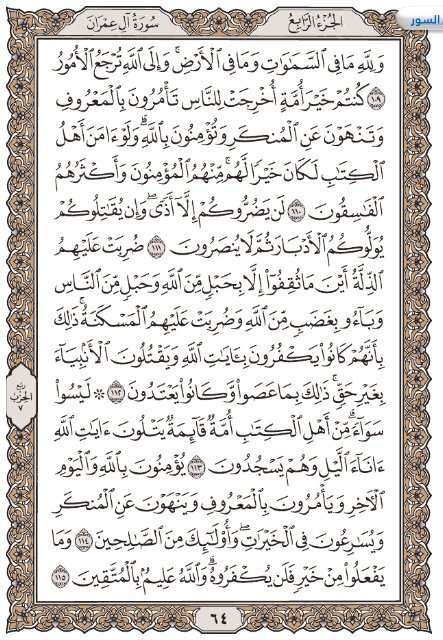 السور
الجزء الرابع
سورة آل عمران
وَلِلَّهِ مَا فِي السَّمَاوَاتِ وَمَا فِي الْأَرْضِ ۚ وَإِلَى اللَّهِ تُرْجَعُ الْأُمُورُ
١٠٩ كُنتُمْ خَيْرَ أُمَّةٍ أُخْرِجَتْ لِلنَّاسِ تَأْمُرُونَ بِالْمَعْرُوفِ
وَتَنْهَوْنَ عَنِ الْمُنكَرِ وَتُؤْمِنُونَ بِاللَّهِ ۗ وَلَوْ ءَامَنَ أَهْلُ
الْكِتَابِ لَكَانَ خَيْرًا لَّهُم ۚ مِّنْهُمُ الْمُؤْمِنُونَ وَأَكْثَرُهُمُ
الْفَاسِقُونَ ١١٠ لَن يَضُرُّوكُمْ إِلَّا أَذًى ۖ وَإِن يُقَاتِلُوكُمْ
يُوَلُّوكُمُ الْأَدْبَارَ ثُمَّ لَا يُنصَرُونَ ١١١ ضُرِبَتْ عَلَيْهِمُ
الذِّلَّةُ أَيْنَ مَا ثُقِفُوا إِلَّا بِحَبْلٍ مِّنَ اللَّهِ وَحَبْلٍ مِّنَ النَّاسِ
وَبَاءُو بِغَضَبٍ مِّنَ اللَّهِ وَضُرِبَتْ عَلَيْهِمُ الْمَسْكَنَةُ ۚ ذَٰلِكَ
بِأَنَّهُمْ كَانُوا يَكْفُرُونَ بِـَٔايَاتِ اللَّهِ وَيَقْتُلُونَ الْأَنۢبِيَاءَ
بِغَيْرِ حَقٍّ ۚ ذَٰلِكَ بِمَا عَصَوا وَّكَانُوا يَعْتَدُونَ ١١٢ ۞ لَيْسُوا
سَوَاءً ۗ مِّنْ أَهْلِ الْكِتَابِ أُمَّةٌ قَائِمَةٌ يَتْلُونَ ءَايَاتِ اللَّهِ
ءَانَاءَ اللَّيْلِ وَهُمْ يَسْجُدُونَ ١١٣ يُؤْمِنُونَ بِاللَّهِ وَالْيَوْمِ
الْآخِرِ وَيَأْمُرُونَ بِالْمَعْرُوفِ وَيَنْهَوْنَ عَنِ الْمُنكَرِ
وَيُسَارِعُونَ فِي الْخَيْرَاتِ ۖ وَأُولَٰئِكَ مِنَ الصَّالِحِينَ ١١٤ وَمَا
يَفْعَلُوا مِنْ خَيْرٍ فَلَن يُكْفَرُوهُ ۗ وَاللَّهُ عَلِيمٌۢ بِالْمُتَّقِينَ ١١٥
ربع
الحزب
٧
٦٤